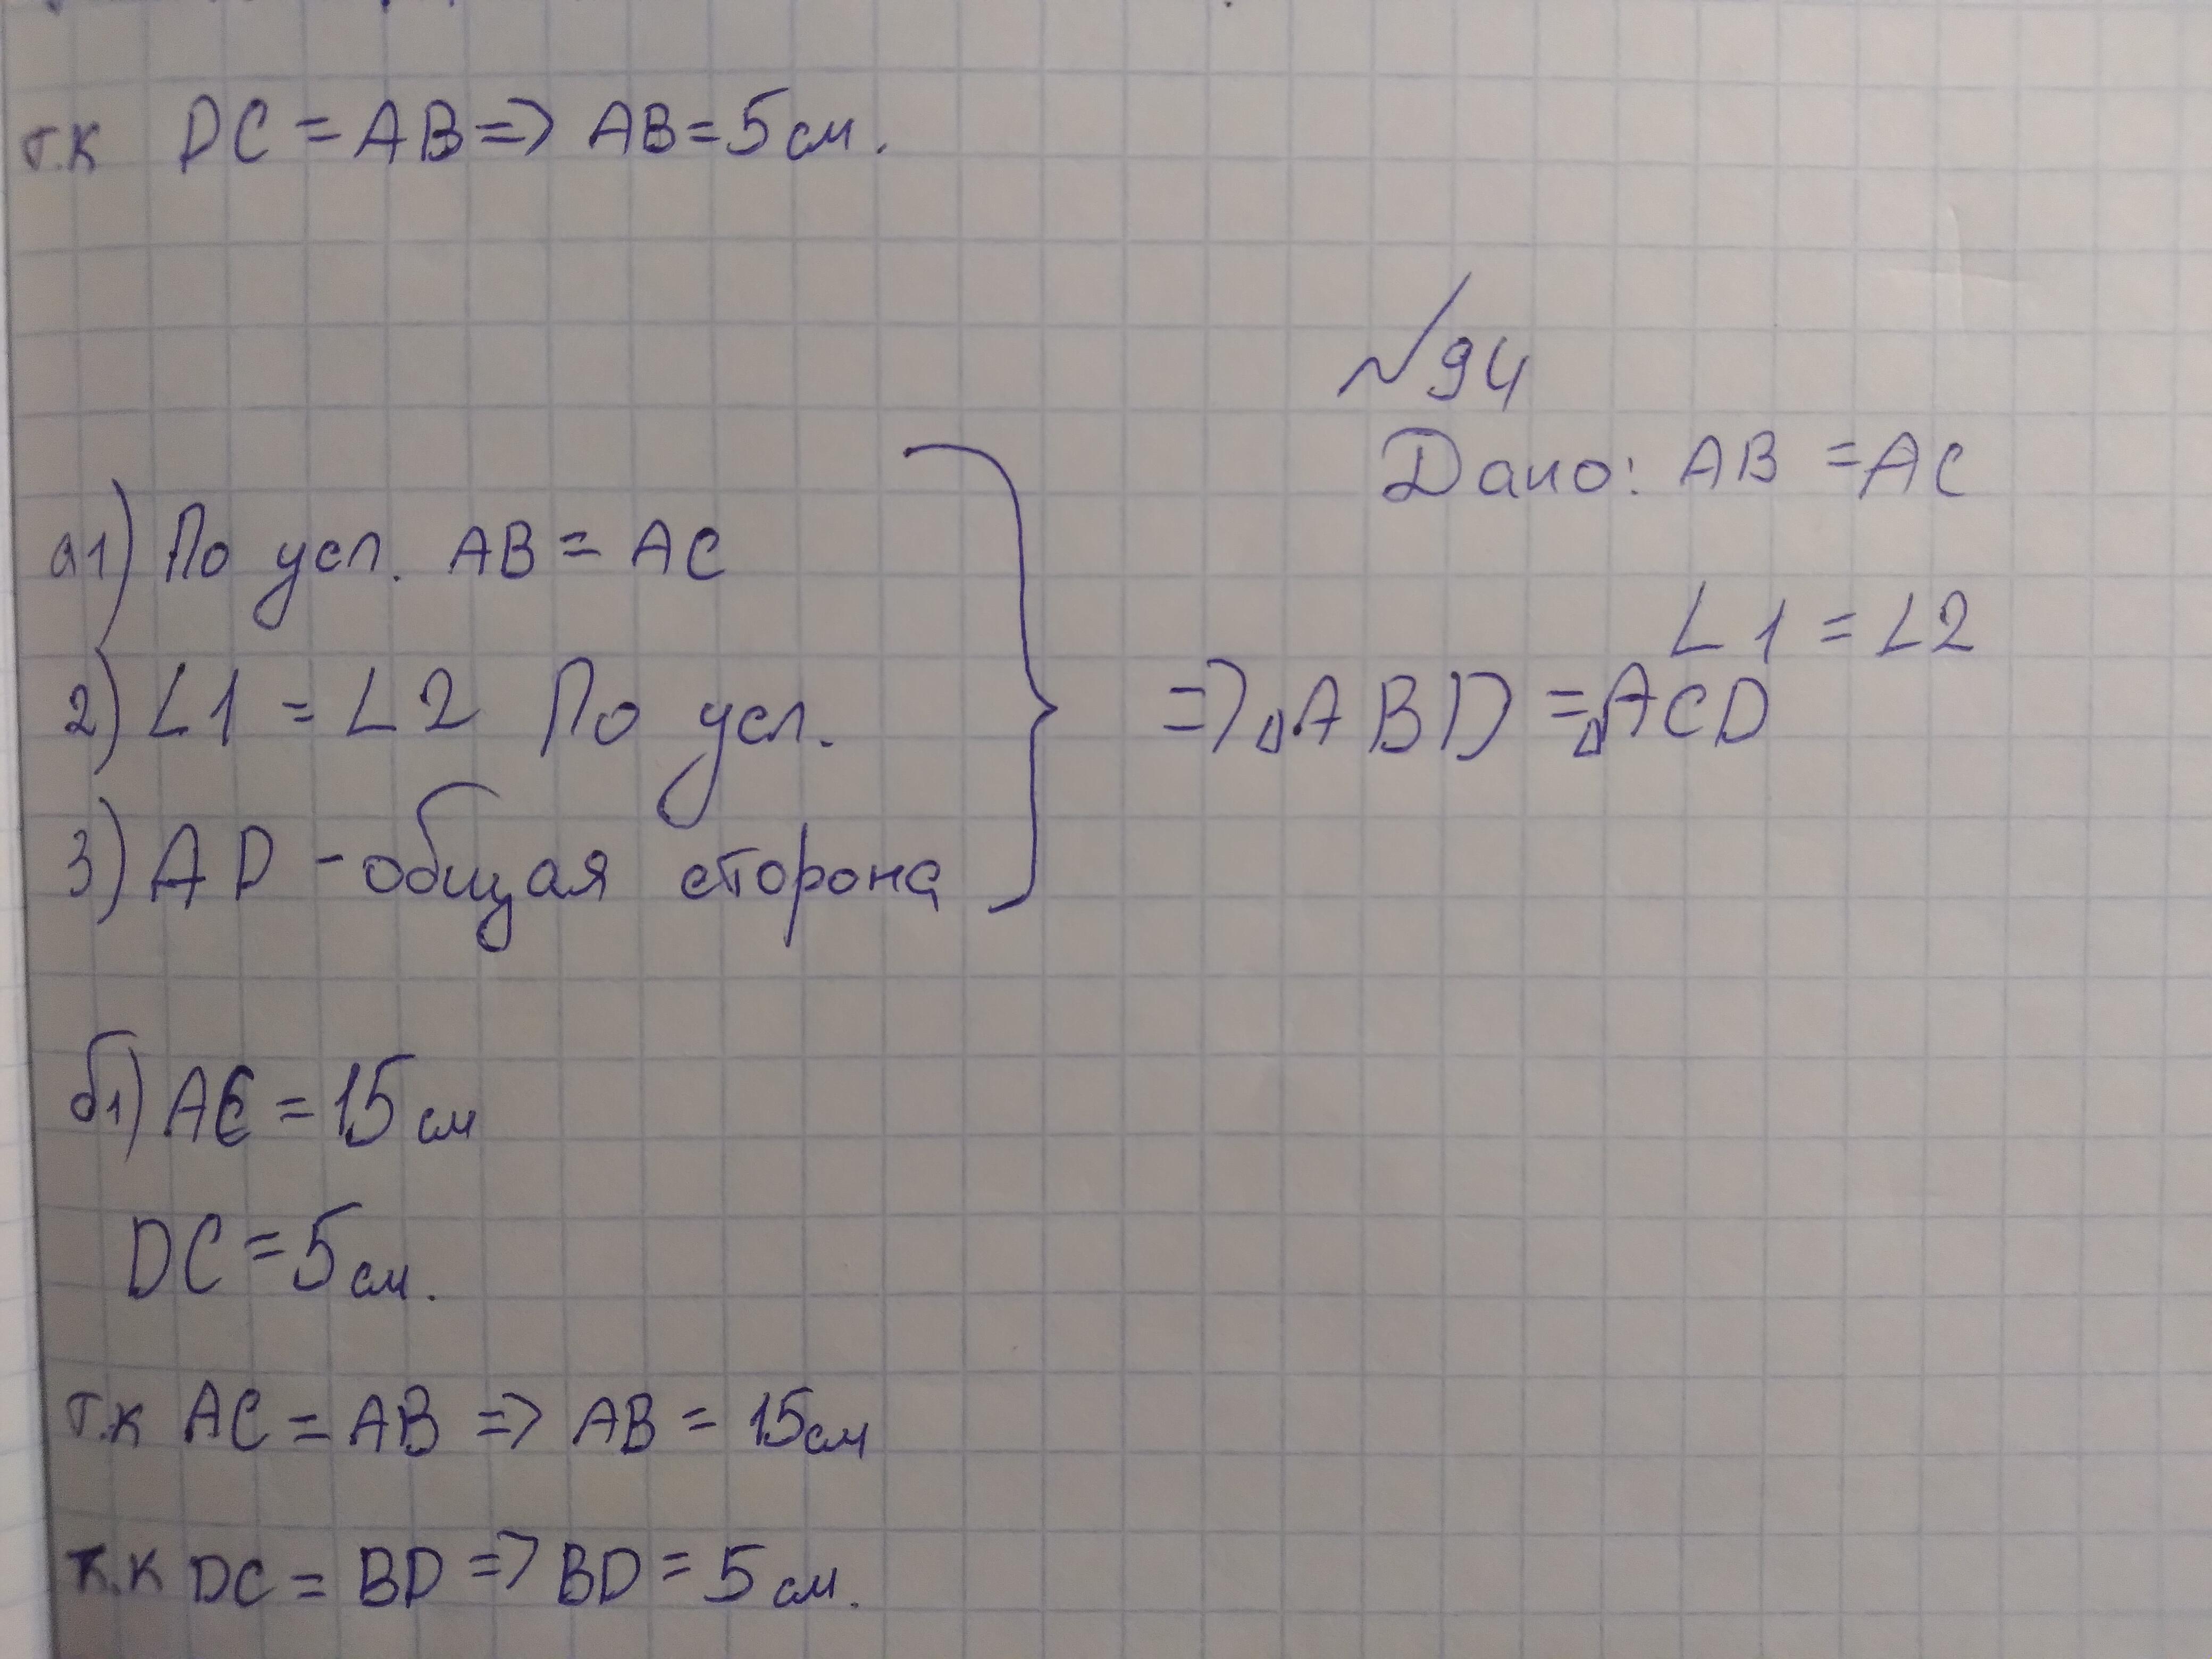 т.к DC = AB => AB = 5см.
№94
Дано: AB = AC
∠1 = ∠2
а1) По усл. AB = AC
2) ∠1 = ∠2 По усл.
3) AD - общая сторона
=> △ABD = △ACD
б1) AC = 15см
DC = 5см.
т.к AC = AB => AB = 15см
т.к DC = BD => BD = 5см.